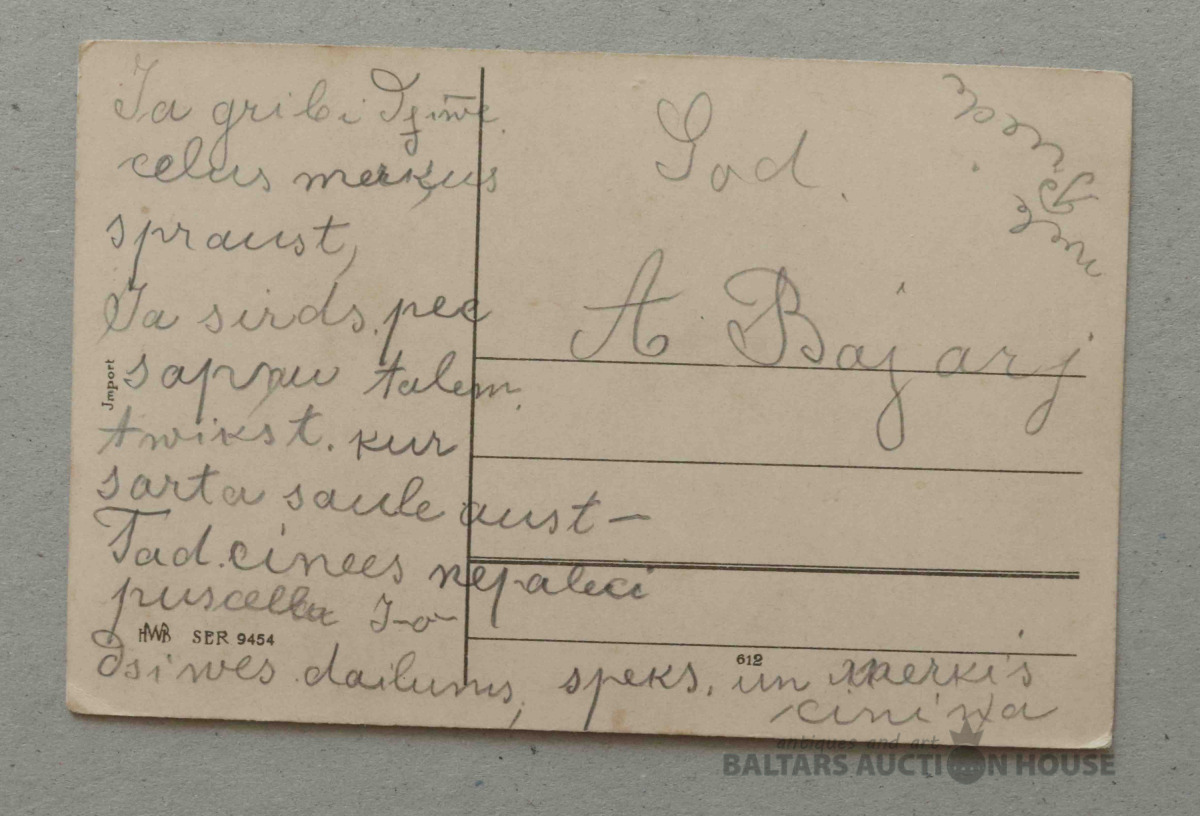 Ja gribi Dziwē
celus merķus
spraust,
Ja sirds, pec
sapņu talem
twikst. kur
sarta saule aust —
Tad. cinees nepaleci
puscella Jo
dsiwes dailums, speks, un merkis
ciniņa
God.
A Bajarj
Import
HWB SER 9454
612
antiques and art
BALTARS AUCTION HOUSE